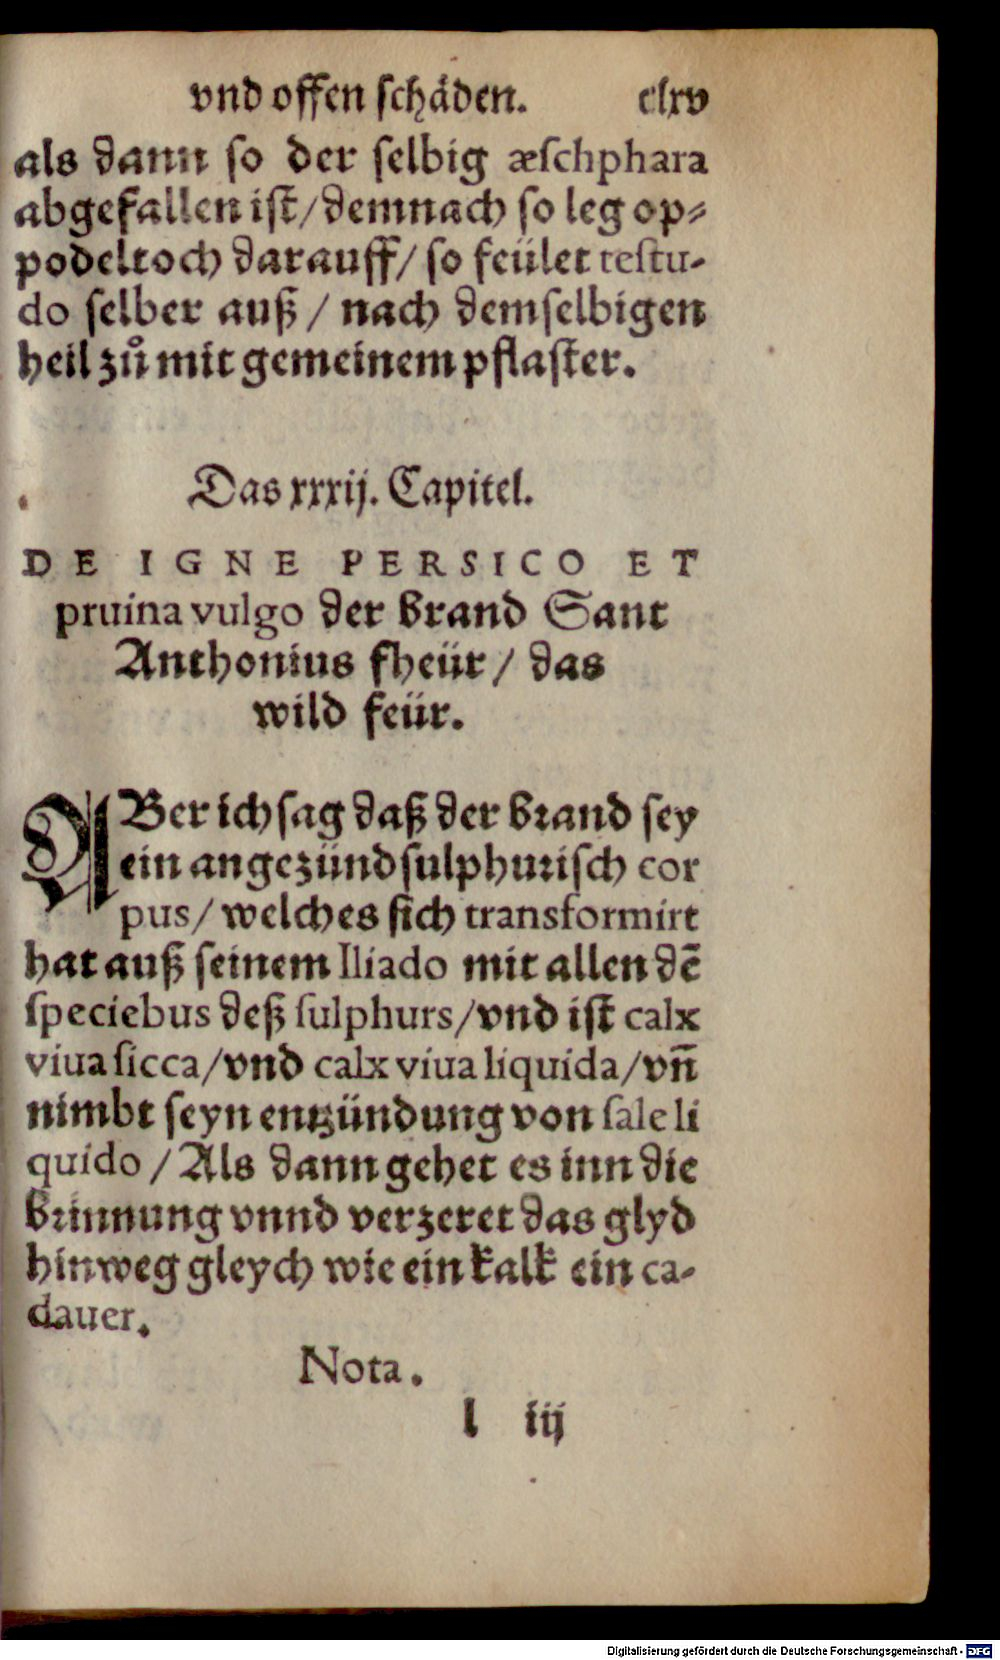 vnd offen schäden. clxv
als dann so der selbig æschphara
abgefallen ist/demnach so leg op⸗
podeltoch darauff/ so feület testu-
do selber auß / nach demselbigen
heil zů mit gemeinem pflaster.
Das xxxij. Capitel.
DE IGNE PERSICO ET
pruina vulgo der brand Sant
Anthonius fheür / das
wild feür.
ABer ich sag daß der brand sey
ein angezünd sulphurisch cor
pus/ welches sich transformirt
hat auß seinem Iliado mit allen dẽ
speciebus deß sulphurs/vnd ist calx
viua sicca/vnd calx viua liquida/vñ
nimbt seyn entzündung von sale li
quido / Als dann gehet es inn die
brinnung vnnd verzeret das glyd
hinweg gleych wie ein kalk ein ca-
dauer.
Nota.
l iij
Digitalisierung gefördert durch die Deutsche Forschungsgemeinschaft - DFG